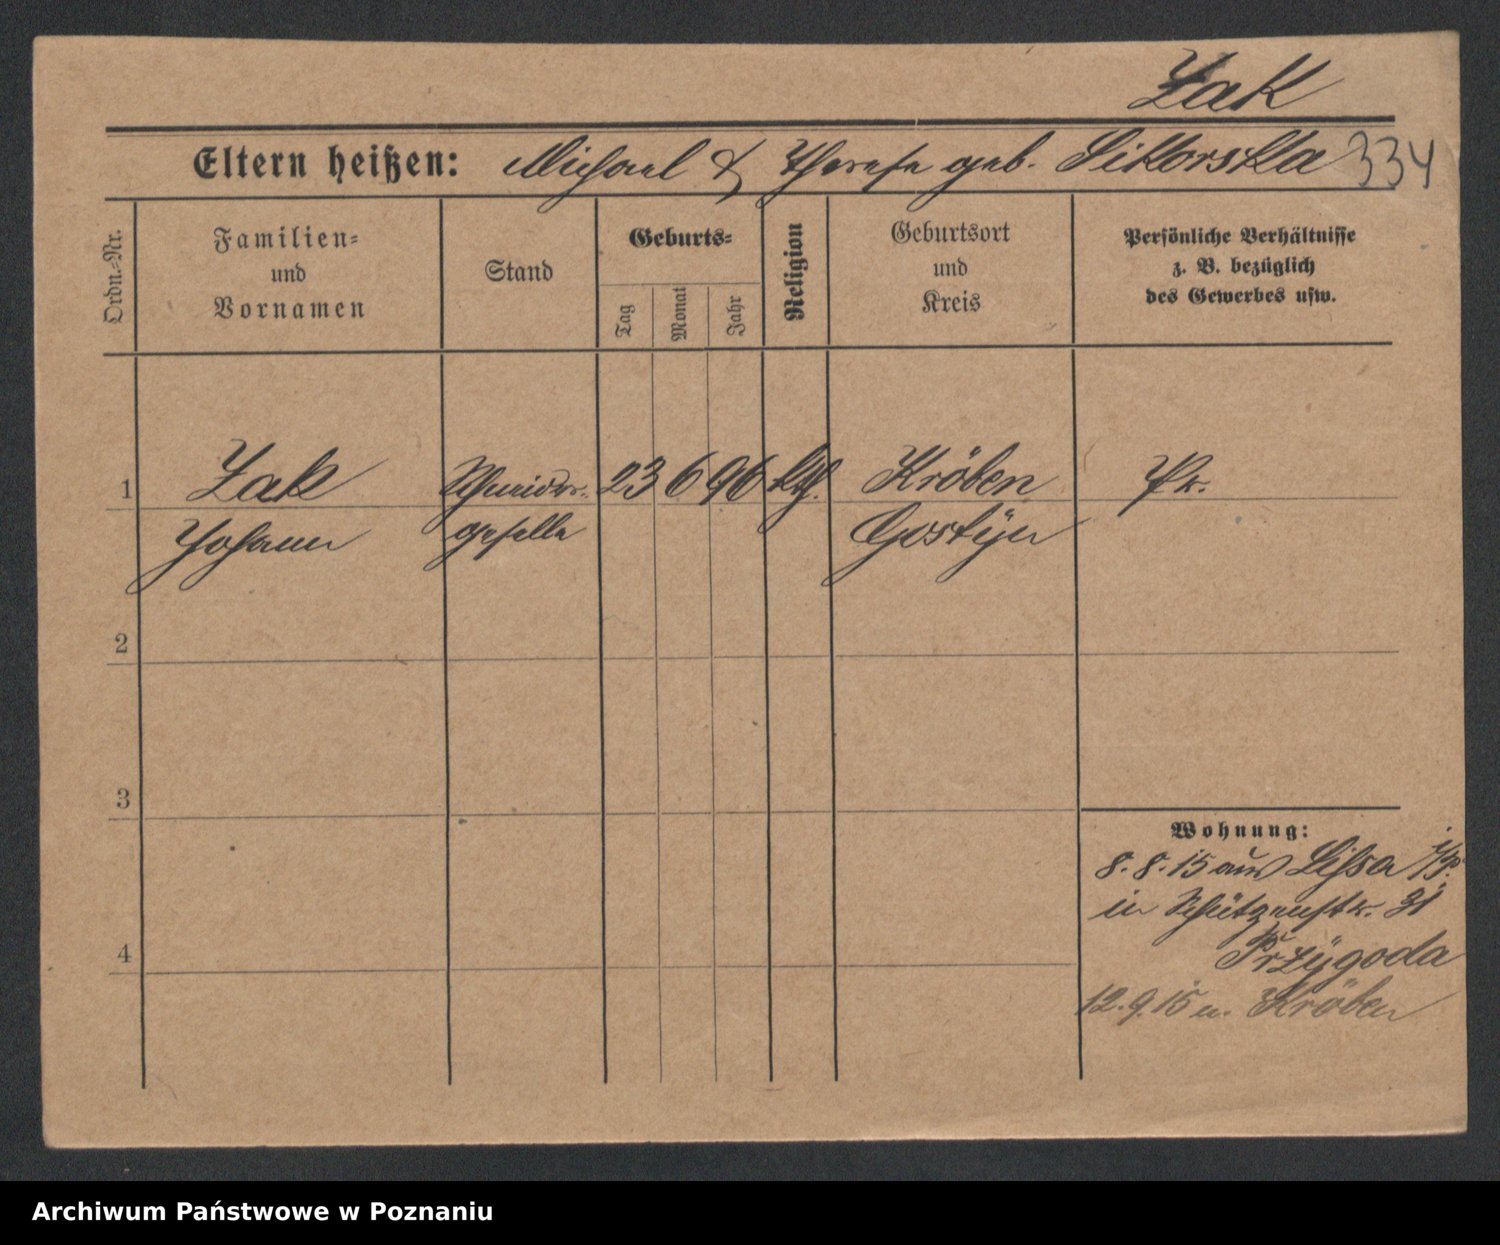 Zak
Eltern heißen: Michael & Therese geb. Sikorska 334
Ordn.-Nr.
Familien-
und
Vornamen
Stand
Geburts-
Tag
Monat
Jahr
Religion
Geburtsort
und
Kreis
Persönliche Verhältnisse
z. B. bezüglich
des Gewerbes usw.
1 Zak Schneider- 23 6 96 kth. Kröben Pr.
Johann geselle Gostÿn
2
3
4
Wohnung:
8.8.15 aus Lissa i/P.
in Schützenstr. 31
Przÿgoda
12.9.15 n. Kröben
Archiwum Państwowe w Poznaniu